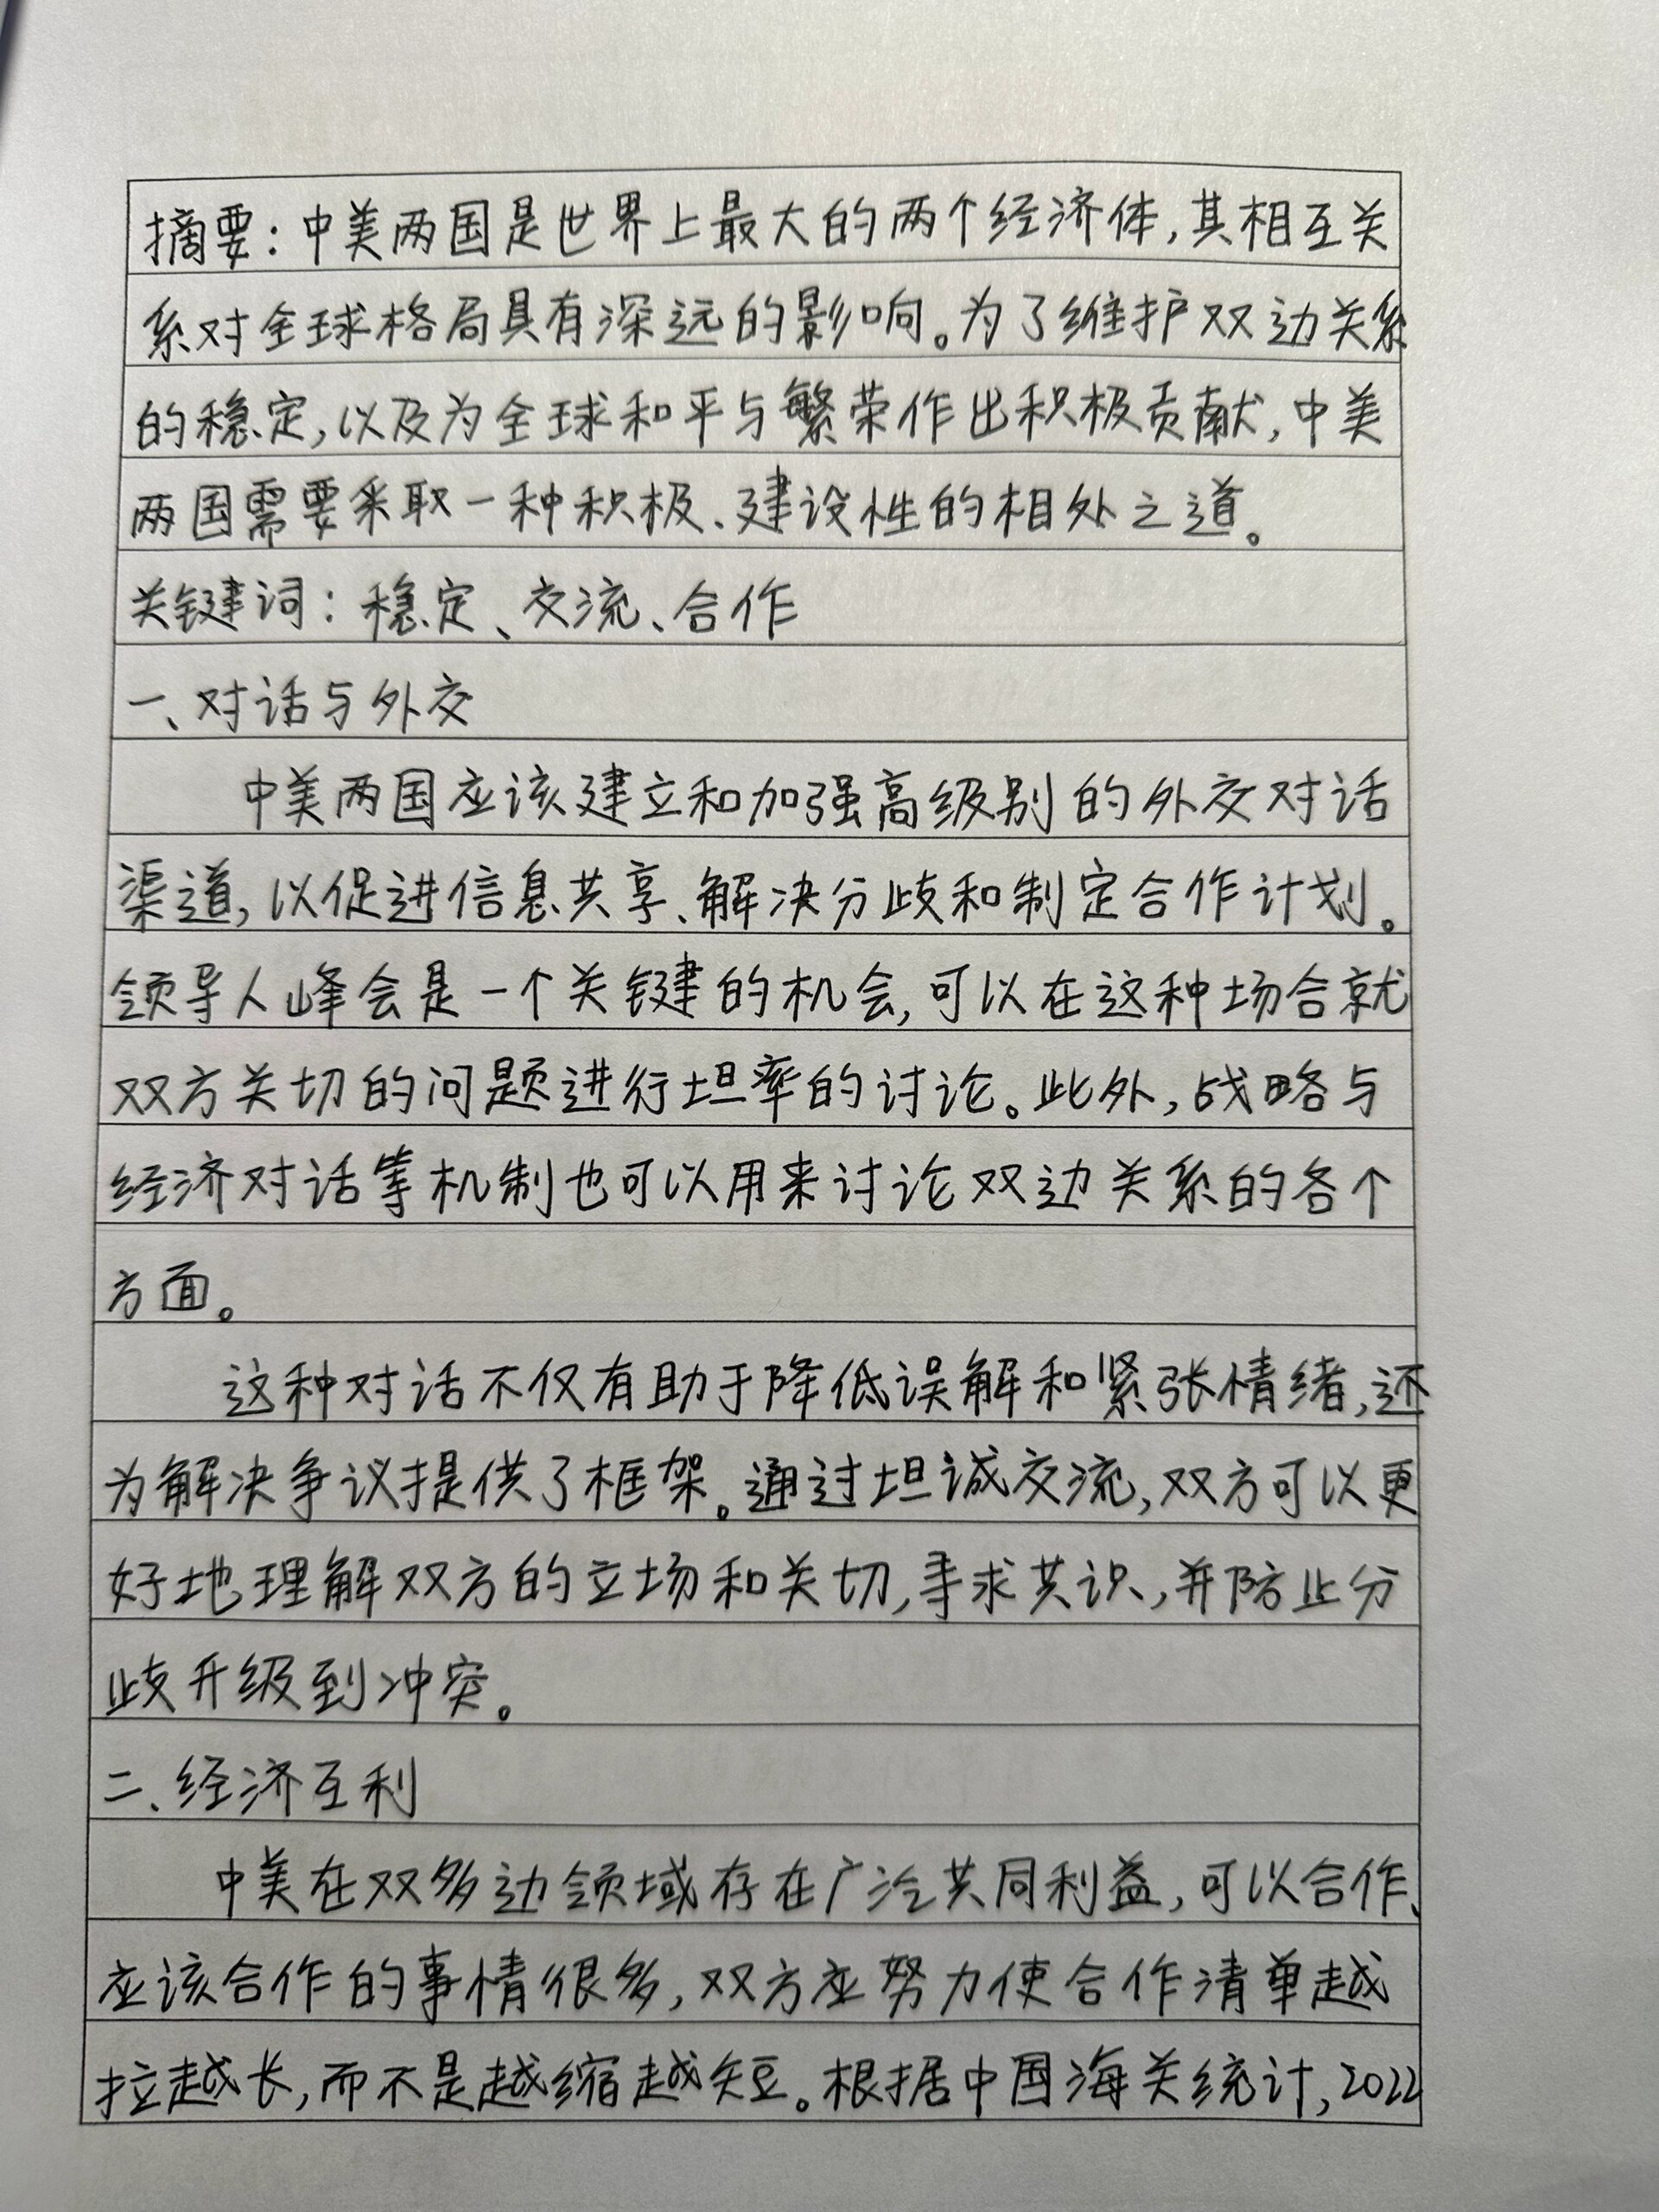 摘要：中美两国是世界上最大的两个经济体，其相互关
系对全球格局具有深远的影响。为了维护双边关系
的稳定，以及为全球和平与繁荣作出积极贡献，中美
两国需要采取一种积极、建设性的相处之道。
关键词：稳定、交流、合作
一、对话与外交
中美两国应该建立和加强高级别的外交对话
渠道，以促进信息共享、解决分歧和制定合作计划。
领导人峰会是一个关键的机会，可以在这种场合就
双方关切的问题进行坦率的讨论。此外，战略与
经济对话等机制也可以用来讨论双边关系的各个
方面。
这种对话不仅有助于降低误解和紧张情绪，还
为解决争议提供了框架。通过坦诚交流，双方可以更
好地理解双方的立场和关切，寻求共识，并防止分
歧升级到冲突。
二、经济互利
中美在双多边领域存在广泛共同利益，可以合作、
应该合作的事情很多，双方应努力使合作清单越
拉越长，而不是越缩越短。根据中国海关统计，2022